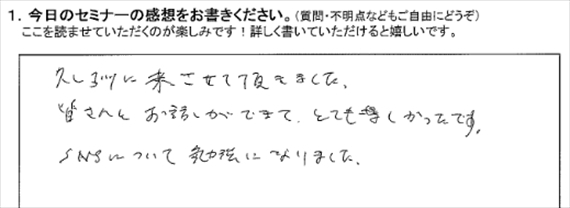 1. 今日のセミナーの感想をお書きください。(質問・不明点などもご自由にどうぞ)
ここを読ませていただくのが楽しみです!詳しく書いていただけると嬉しいです。
久し振りに来させて頂きました。
皆さんとお話しができて、とても楽しかったです。
SNSについて勉強になりました。